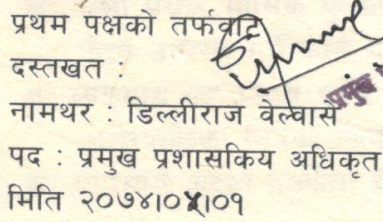 प्रथम पक्षको तर्फवाट
दस्तखत :
नामथर : डिल्लीराज वेल्वासे
प्रमुख
पद : प्रमुख प्रशासकिय अधिकृत
मिति २०७४।०४।०१